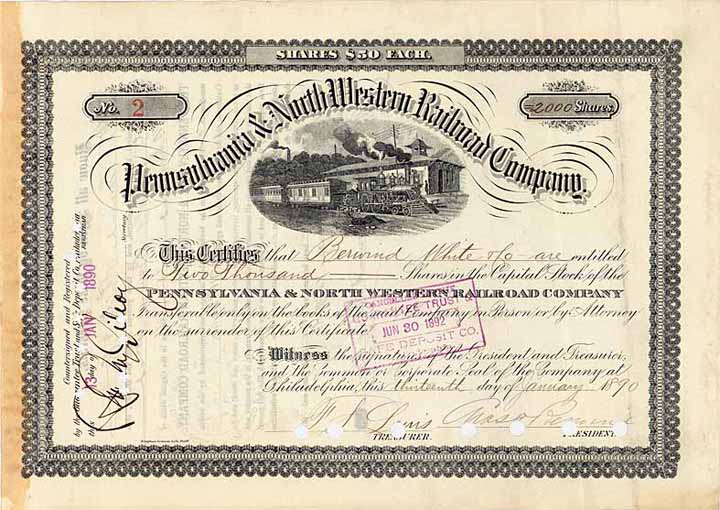 SHARES $50 EACH.
No. 2
2000 Shares.
Pennsylvania & North Western Railroad Company.
This Certifies that Berwind White & Co are entitled
to Two Thousand Shares in the Capital Stock of the
PENNSYLVANIA & NORTH WESTERN RAILROAD COMPANY
Transferable only on the books of the said Company in Person or by Attorney
on the surrender of this Certificate
Witness the signatures of the President and Treasurer,
and the Common or Corporate Seal of the Company at
Philadelphia, this thirteenth day of January 1890
TREASURER.
PRESIDENT.
TRUST
JUN 30 1892
DEPOSIT CO.
Countersigned and Registered
by the Trust and Deposit Co.
this 13 day of JANY 1890